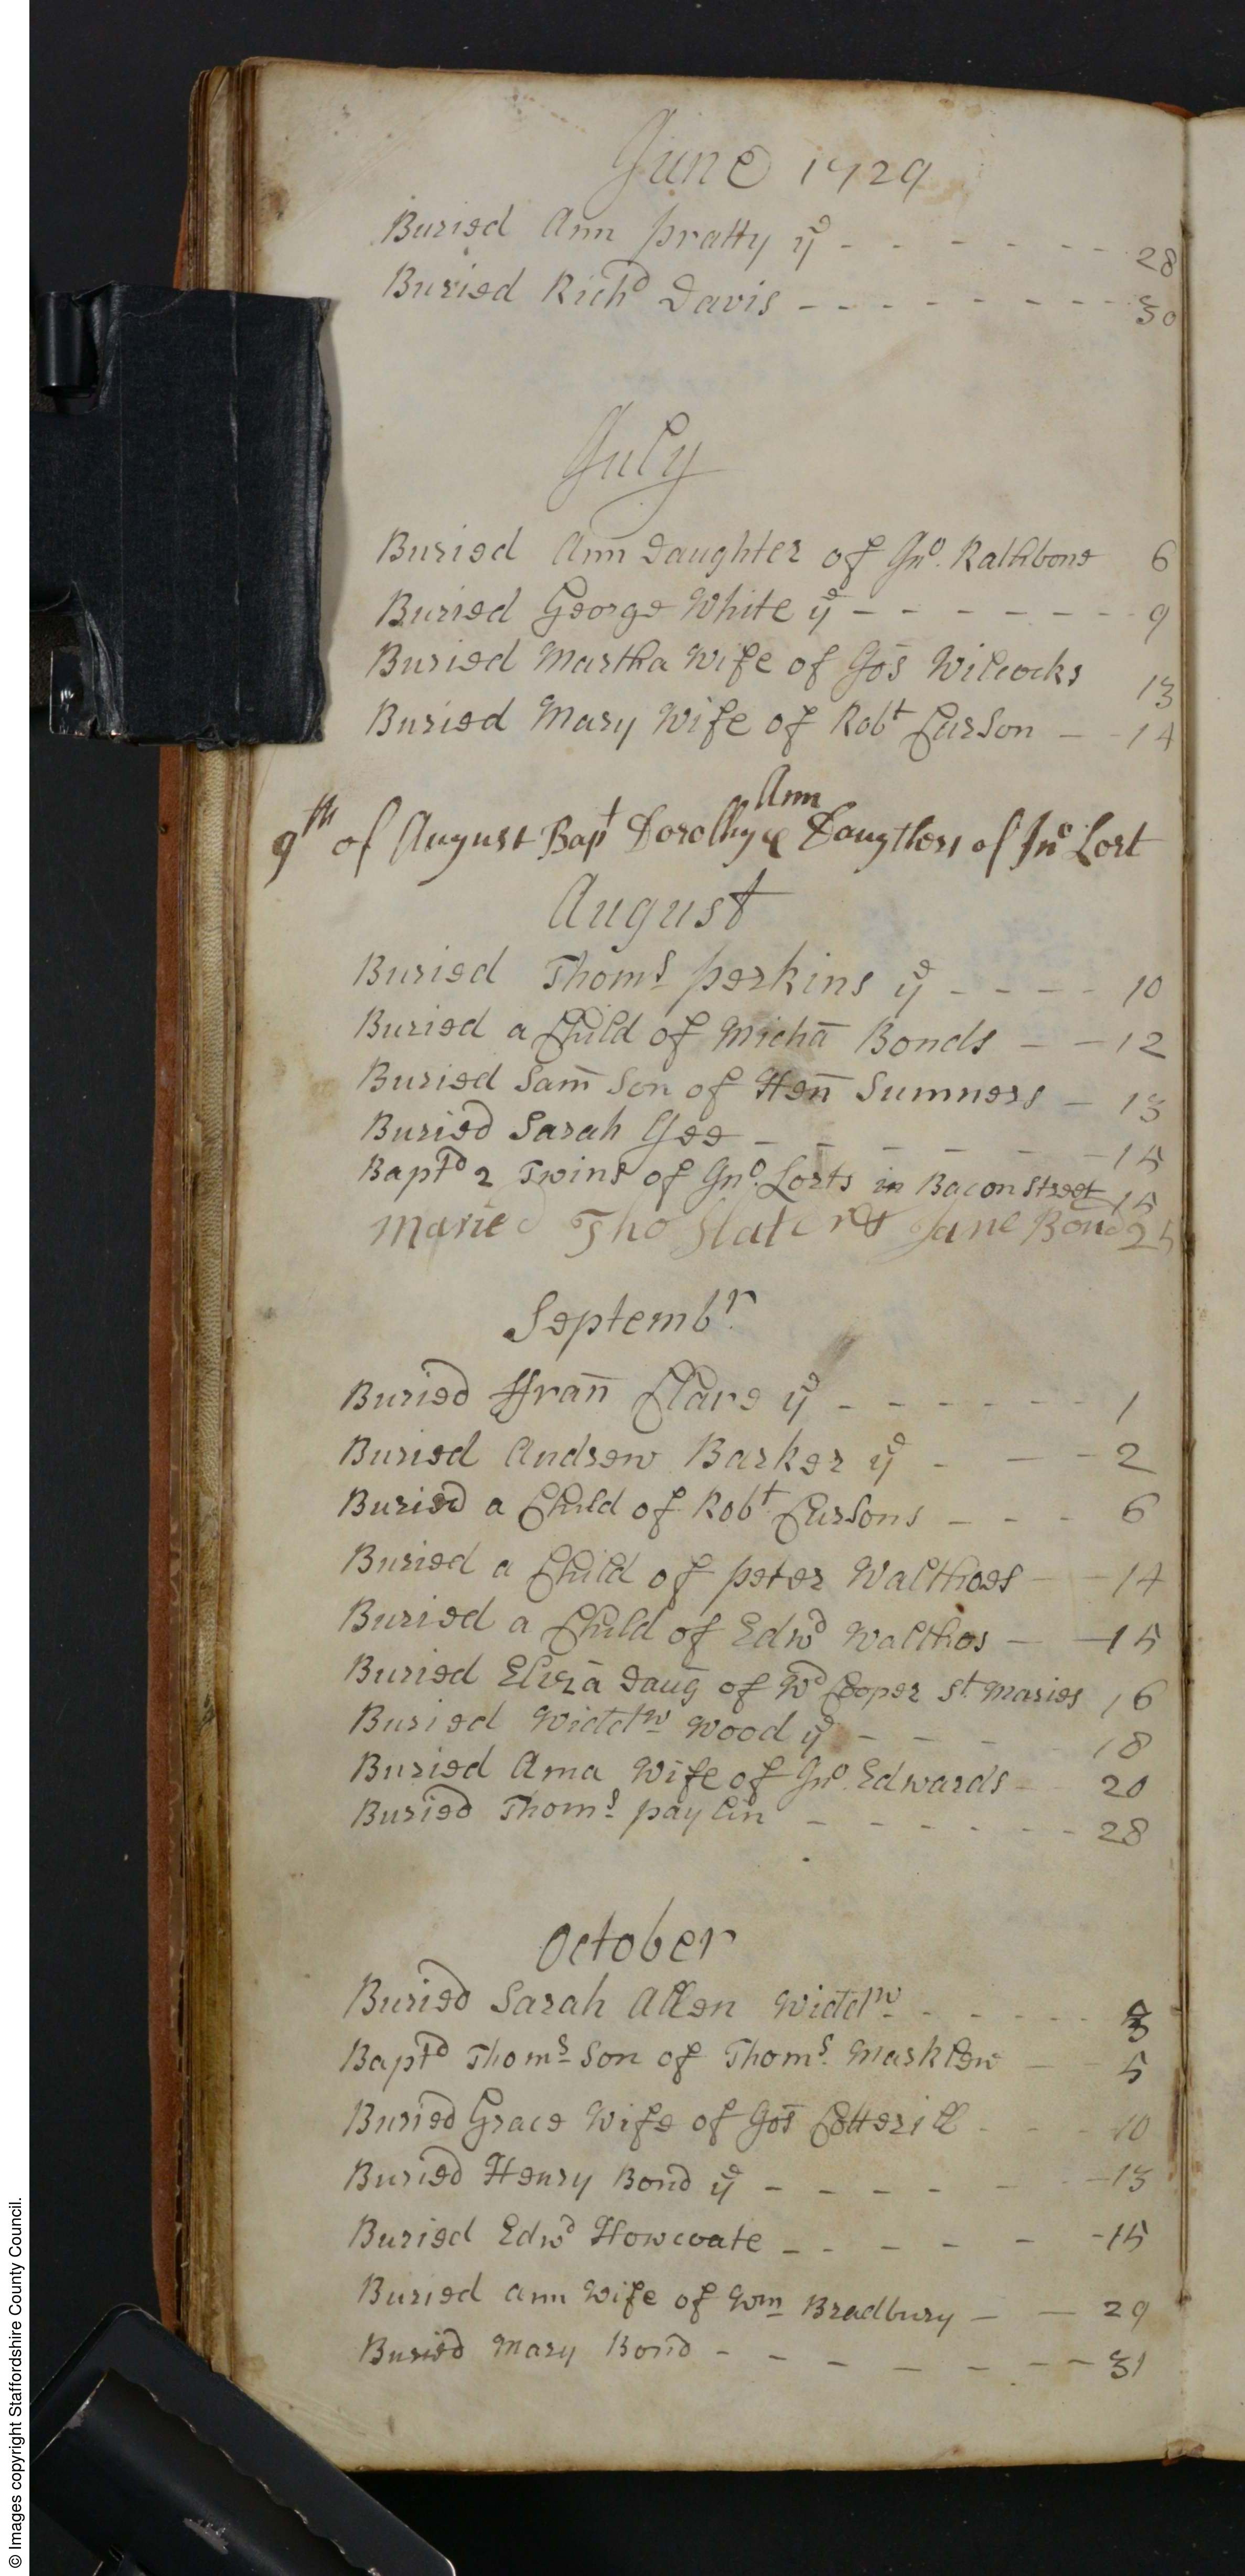 June 1729
Buried Ann pratty yᵉ - - - - - - - 28
Buried Richᵈ Davis - - - - - - - - 30
July
Buried Ann Daughter of Jnᵒ. Rathbone 6
Buried George White yᵉ - - - - - - - 9
Buried Martha Wife of Jos Wilcocks 13
Buried Mary Wife of Robᵗ CurSon - - 14
Ann
9ᵗʰ of August Bapᵗ Dorothy & Daugthers of Jnᵒ Lort
August
Buried Thomˢ perkins yᵉ - - - - 10
Buried a Child of Micha̅ Bonds - - 12
Buried Sam̅ Son of Hen̅ Sumners - 13
Buried Sarah Gee - - - - - - 15
Baptᵈ 2 Twins of Jnᵒ. Lorts in Bacon Street 15
Maried Tho Slater & Jane Bond 25
Septembʳ.
Buried ffran̅ Clare yᵉ - - - - - - 1
Buried Andrew Barker yᵉ - - - 2
Buried a Child of Robᵗ CurSons - - - 6
Buried a Child of peter Walthoes - - 14
Buried a Child of Edwᵈ Walthos - - 15
Buried Eliza̅ Daug̅ of Wᵈ Cooper Sᵗ. Maries 16
Buried Widdʷ Wood yᵉ - - - - 18
Buried Ama Wife of Jnᵒ. Edwards - 20
Buried Thomˢ paylin - - - - - - - 28
October
Buried Sarah Allen Widdʷ - - - - - 3
Baptᵈ Thomˢ Son of Thomˢ. Masklew - - 5
Buried Grace Wife of Jos̅ Cotterill - - - 10
Buried Henry Bond yᵉ - - - - - - 13
Buried Edwᵈ Howcoate - - - - - - 15
Buried Ann Wife of Wm Bradbury - - 29
Buried Mary Bond - - - - - - - 31
© Images copyright Staffordshire County Council.